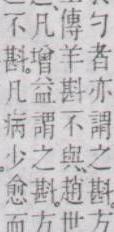 勺者亦謂之斟。方
傳羊斟不與。趙世
凡增益謂之斟。方
不斟。凡病少愈而